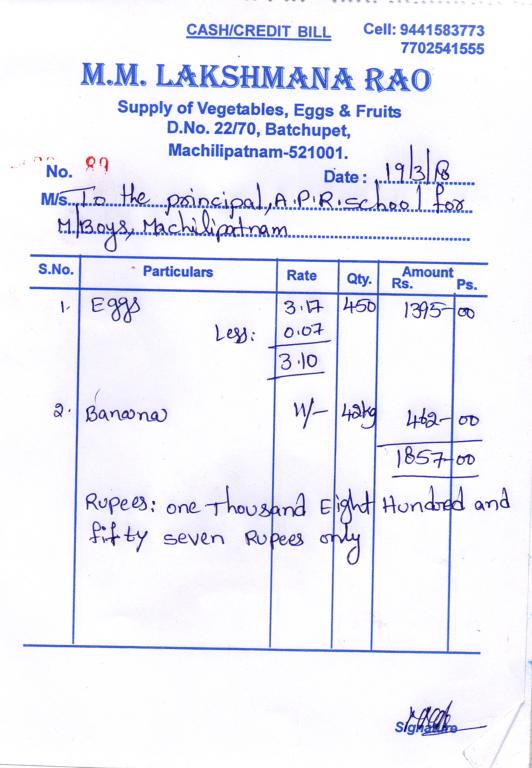 CASH/CREDIT BILL
Cell: 9441583773
7702541555
M.M. LAKSHMANA RAO
Supply of Vegetables, Eggs & Fruits
D.No. 22/70, Batchupet,
Machilipatnam-521001.
No. 89
Date: 19/3/18
M/s. To the principal, A.P.R. school for
M/Boys, Machilipatnam
S.No. Particulars Rate Qty. Amount
Rs. Ps.
1. Eggs 3.17 450 1395-00
Less: 0.07
3.10
2. Banana 11/- 42kg 462-00
1857-00
Rupees: one Thousand Eight Hundred and
fifty seven Rupees only
Signature